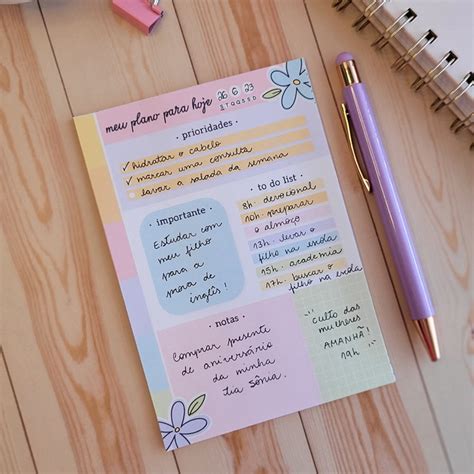 meu plano para hoje 26 6 23
STQQSSD
· prioridades ·
hidratar o cabelo
marcar uma consulta
lavar a salada da semana
importante
Estudar com
meu filho
para a
prova de
inglês!
to do list
8h. devocional
10h. preparar
o almoço
13h. levar o
filho na escola
15h. academia
17h. buscar o
filho na escola
· notas ·
Comprar presente
de aniversário
da minha
tia sônia.
culto das
mulheres
AMANHÃ!
19h